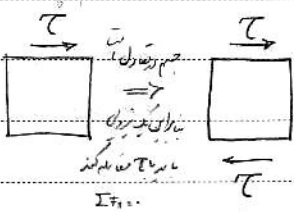 τ τ
جسم در تعادل است
⇒
بنابراین یک نیروی
باید با τ مقابله کند
τ
ΣFx=0